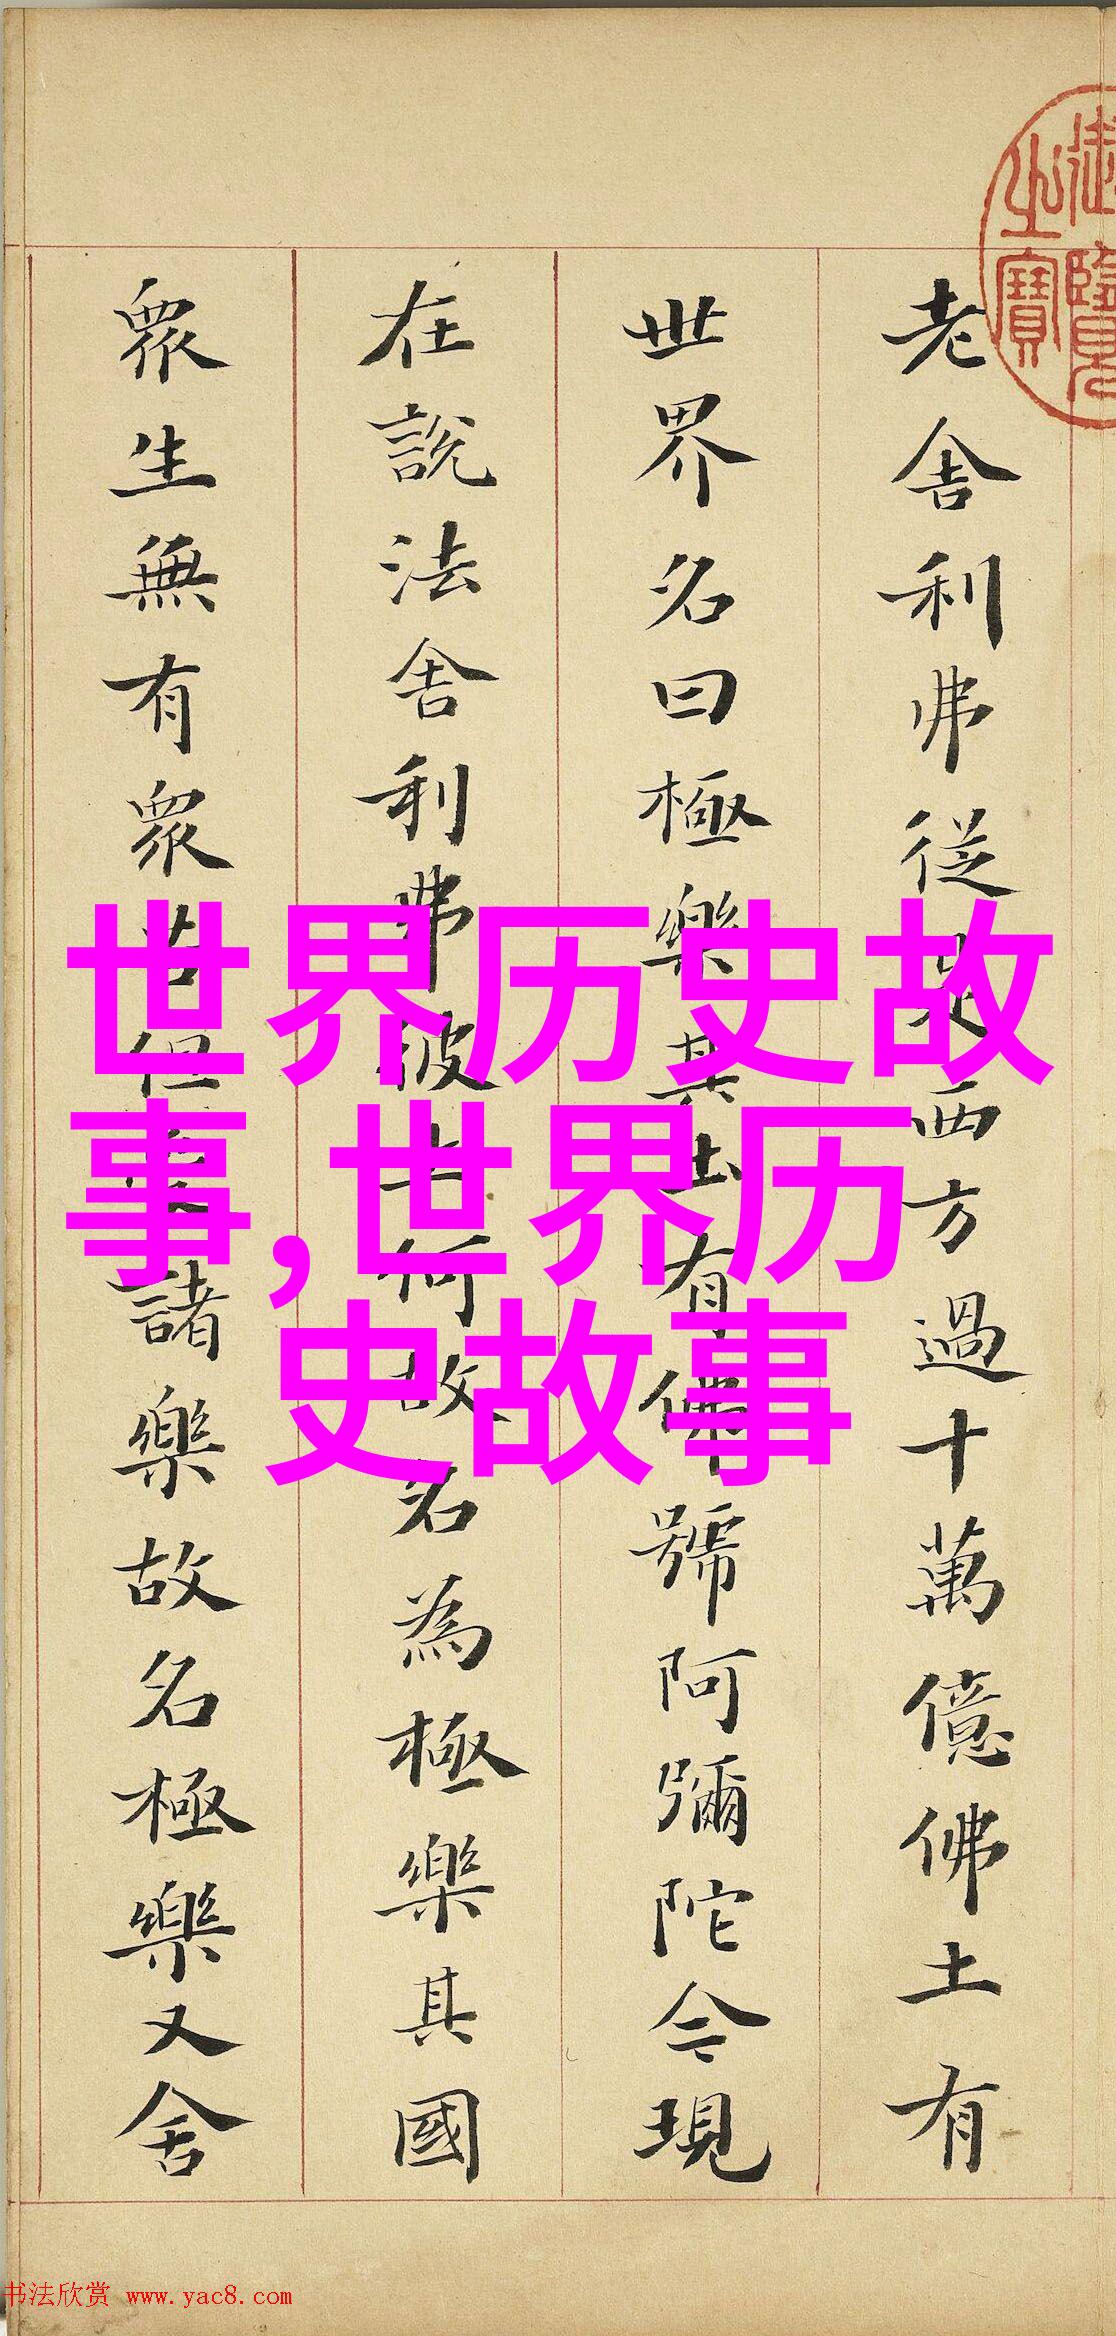 御覽之寶
老舍利弗從是西方過十萬億佛土有
世界名曰極樂其土有佛號阿彌陀今現
在說法舍利弗彼土何故名為極樂其國
眾生無有眾苦但受諸樂故名極樂又舍
世界历史故
事,世界历
史故事
书法欣赏 www.yac8.com